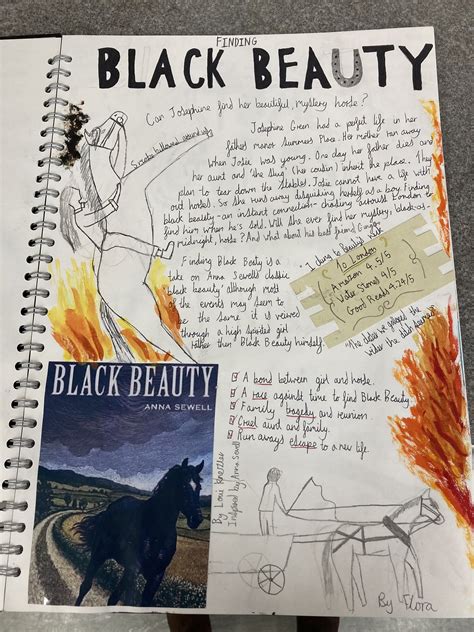 FINDING
BLACK BEAUTY
Can Josephine find her beautiful, mystery horse?
Josephine Green had a perfect life in her
fathers manor Summers Place. Her mother ran away
when Josie was young. One day her father dies and
her aunt and 'the Slug' (her cousin) inherit the place. They
plan to tear down the stables. Josie cannot have a life with
out horses. So she runs away disguising herself as a boy. Finding
black beauty - an instant connection - chasing across London to
find him when he's sold. Will she ever find her mystery, black as
midnight, horse? And what about his best friend Ginger
Finding Black Beauty is a
take on Anna Sewell's classic
'black beauty' although most
of the events may seem to
be the same it is viewed
through a high spirited girl
rather then Black Beauty himself.
To London
Amazon 4.5/5
Water Stones 4/5
Good Reads 4.24/5
BLACK BEAUTY
ANNA SEWELL
A bond between girl and horse.
A race against time to find Black Beauty
Family tragedy and reunion.
Cruel aunt and family.
Run aways escape to a new life.
By Lou Kuenzler
Inspired by Anna Sewell
By Flora